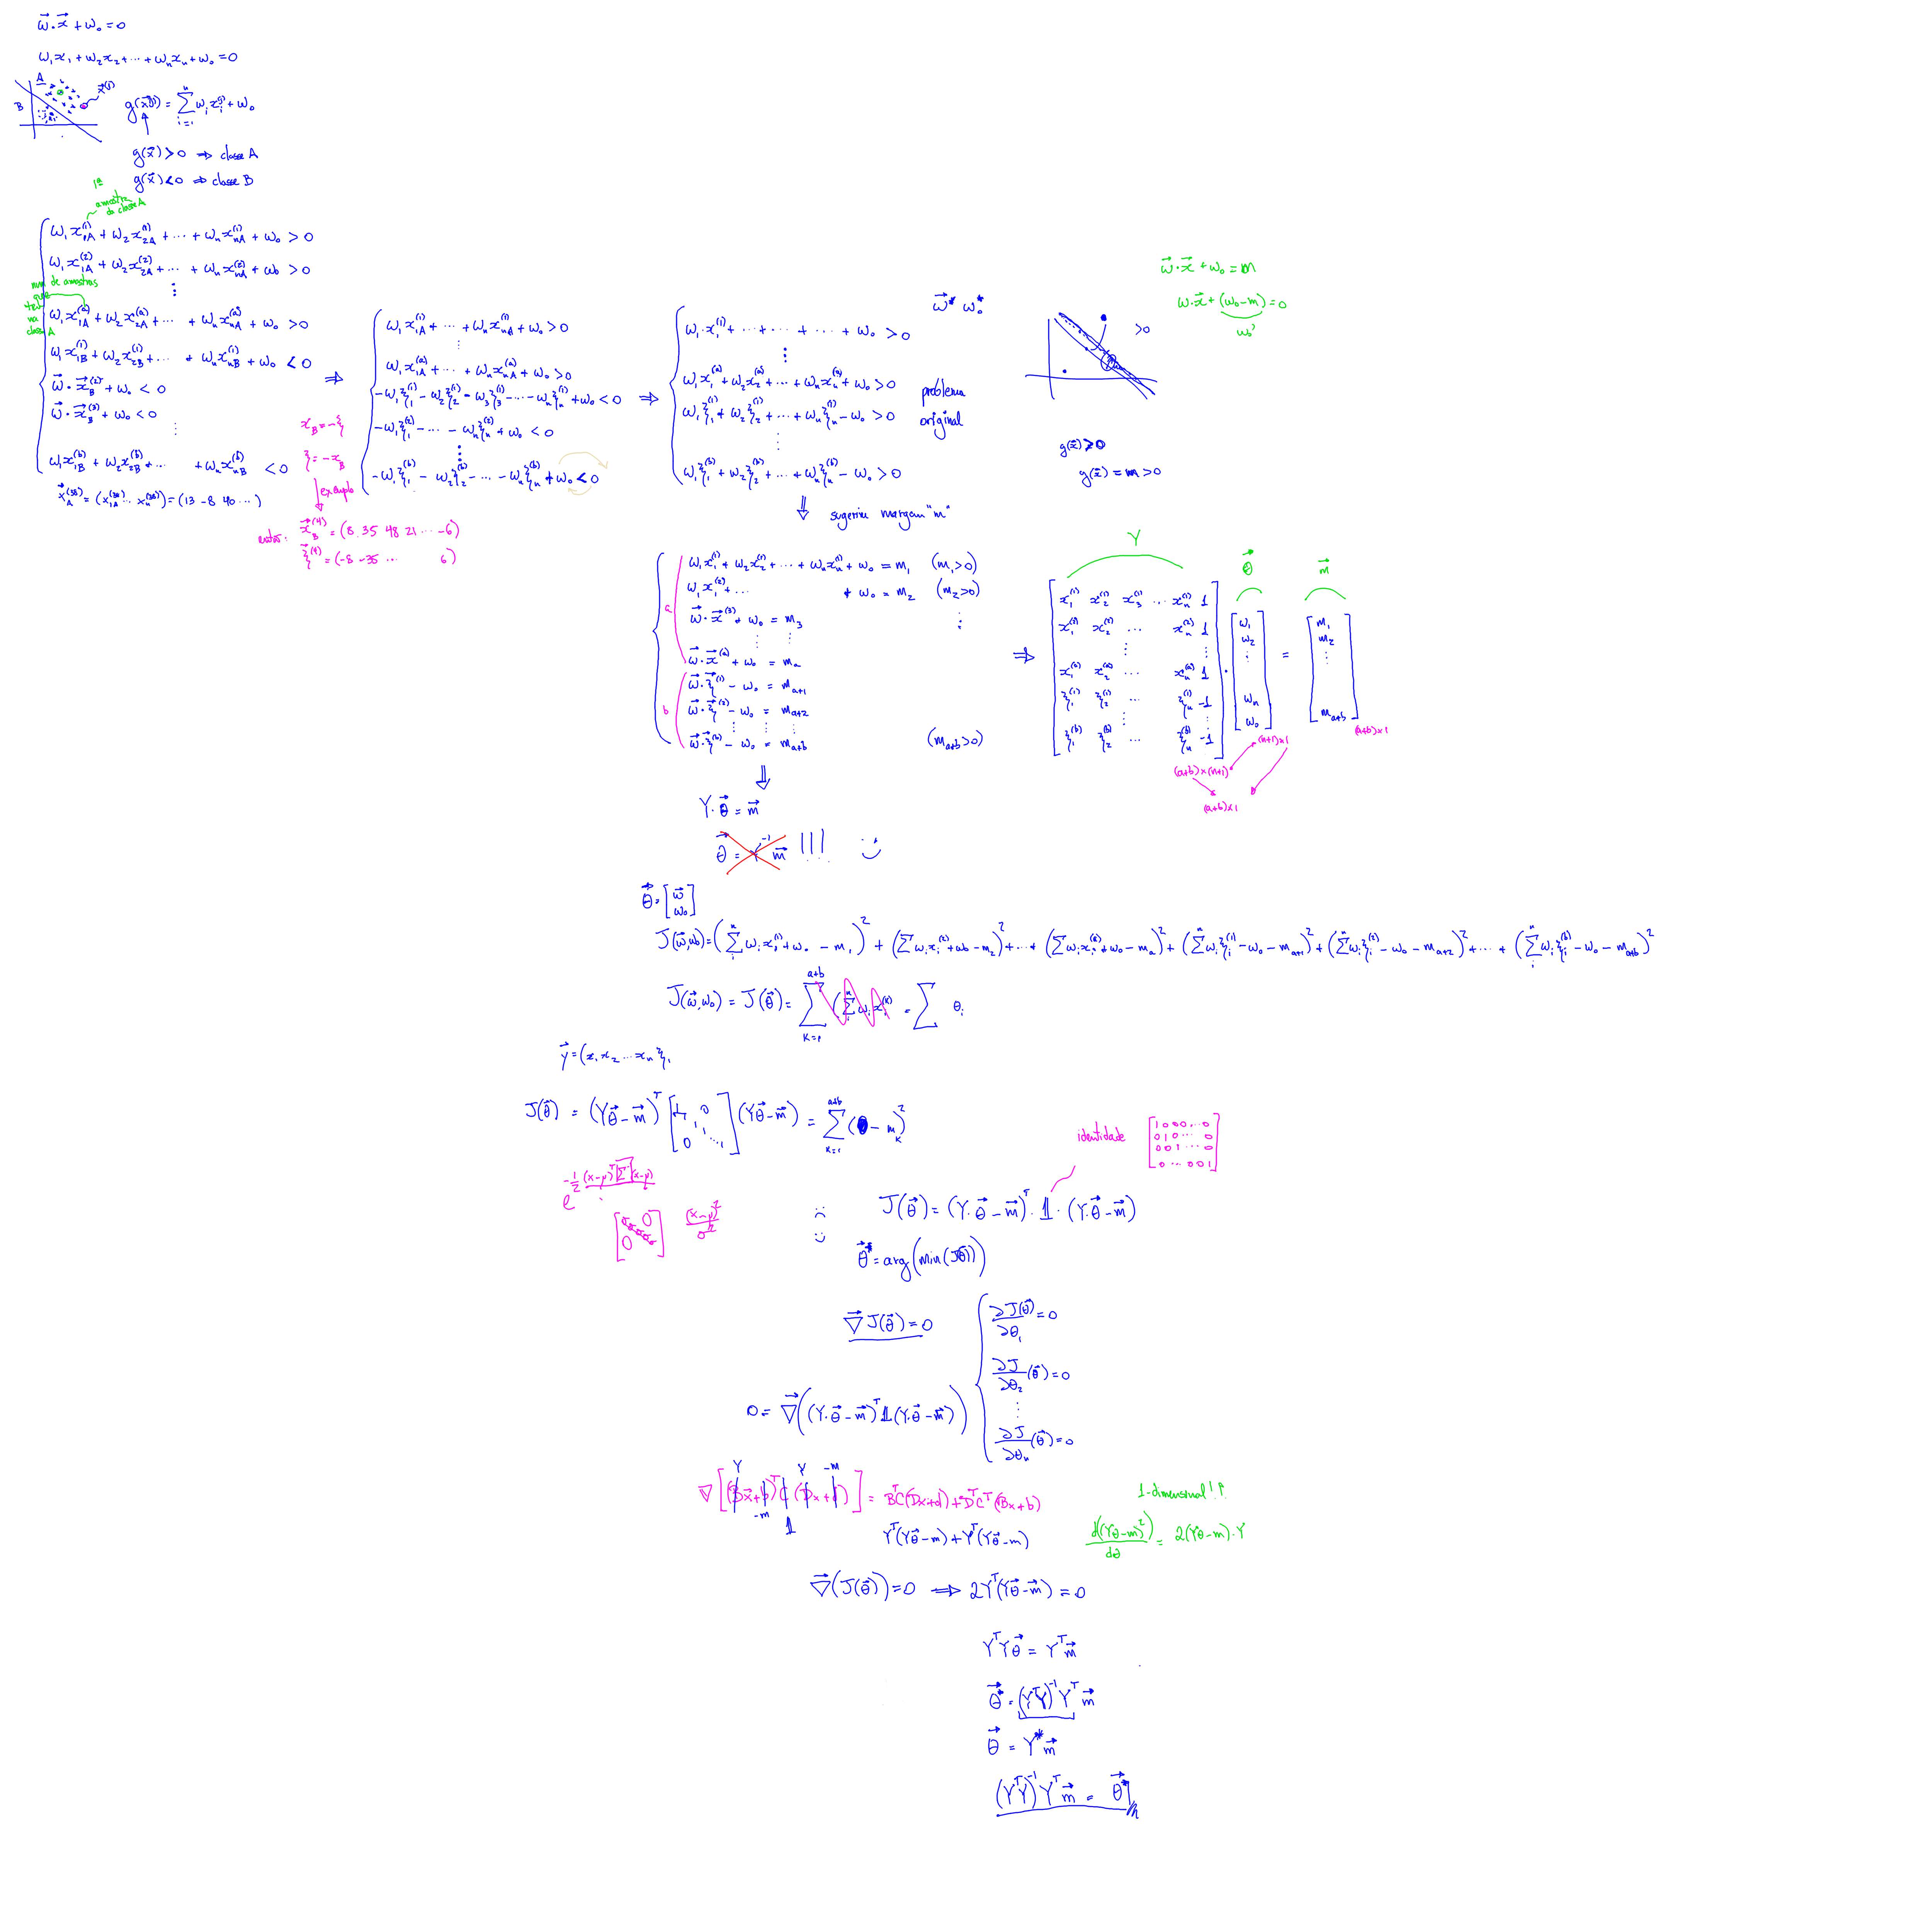 w⃗·x⃗ + w₀ = 0
w₁x₁ + w₂x₂ + ⋯ + wₙxₙ + w₀ = 0
A
B
x⃗⁽¹⁾
g(x⃗⁽ʲ⁾) = ∑ᵢ₌₁ⁿ wᵢ xᵢ⁽ʲ⁾ + w₀
g(x⃗) > 0 ⇒ classe A
g(x⃗) < 0 ⇒ classe B
1ª amostra da classe A
w₁x₁A⁽¹⁾ + w₂x₂A⁽¹⁾ + ⋯ + wₙxₙA⁽¹⁾ + w₀ > 0
w₁x₁A⁽²⁾ + w₂x₂A⁽²⁾ + ⋯ + wₙxₙA⁽²⁾ + w₀ > 0
⋮
num de amostras que tem na classe A
w₁x₁A⁽ᵃ⁾ + w₂x₂A⁽ᵃ⁾ + ⋯ + wₙxₙA⁽ᵃ⁾ + w₀ > 0
w₁x₁B⁽¹⁾ + w₂x₂B⁽¹⁾ + ⋯ + wₙxₙB⁽¹⁾ + w₀ < 0
w⃗·x⃗B⁽²⁾ + w₀ < 0
w⃗·x⃗B⁽³⁾ + w₀ < 0
⋮
w₁x₁B⁽ᵇ⁾ + w₂x₂B⁽ᵇ⁾ + ⋯ + wₙxₙB⁽ᵇ⁾ < 0
x⃗A⁽³⁸⁾ = (x₁A⁽³⁸⁾ ⋯ xₙ⁽³⁸⁾) = (13 -8 40 ⋯)
x_B = -ξ
ξ = -x_B
exemplo
então: x⃗B⁽⁴⁾ = (8 35 48 21 ⋯ -6)
ξ⃗⁽⁴⁾ = (-8 -35 ⋯ 6)
⇒
w₁x₁A⁽¹⁾ + ⋯ + wₙxₙA⁽¹⁾ + w₀ > 0
⋮
w₁x₁A⁽ᵃ⁾ + ⋯ + wₙxₙA⁽ᵃ⁾ + w₀ > 0
-w₁ξ₁⁽¹⁾ - w₂ξ₂⁽¹⁾ - w₃ξ₃⁽¹⁾ - ⋯ - wₙξₙ⁽¹⁾ + w₀ < 0
-w₁ξ₁⁽²⁾ - ⋯ - wₙξₙ⁽²⁾ + w₀ < 0
⋮
-w₁ξ₁⁽ᵇ⁾ - w₂ξ₂⁽ᵇ⁾ - ⋯ - wₙξₙ⁽ᵇ⁾ + w₀ < 0
⇒
w₁·x₁⁽¹⁾ + ⋯ + ⋯ + ⋯ + w₀ > 0
⋮
w₁x₁⁽ᵃ⁾ + w₂x₂⁽ᵃ⁾ + ⋯ + wₙxₙ⁽ᵃ⁾ + w₀ > 0
w₁ξ₁⁽¹⁾ + w₂ξ₂⁽¹⁾ + ⋯ + wₙξₙ⁽¹⁾ - w₀ > 0
⋮
w₁ξ₁⁽ᵇ⁾ + w₂ξ₂⁽ᵇ⁾ + ⋯ + wₙξₙ⁽ᵇ⁾ - w₀ > 0
problema
original
w⃗* w₀*
> 0
w⃗·x⃗ + w₀ = m
w·x⃗ + (w₀ - m) = 0
w₀'
g(x⃗) > 0
g(x⃗) = m > 0
⇓ sugerir margem "m"
a
w₁x₁⁽¹⁾ + w₂x₂⁽¹⁾ + ⋯ + wₙxₙ⁽¹⁾ + w₀ = m₁ (m₁>0)
w₁x₁⁽²⁾ + ⋯ + w₀ = m₂ (m₂>0)
w⃗·x⃗⁽³⁾ + w₀ = m₃ ⋮
⋮ ⋮
w⃗·x⃗⁽ᵃ⁾ + w₀ = mₐ
b
w⃗·ξ⃗⁽¹⁾ - w₀ = mₐ₊₁
w⃗·ξ⃗⁽²⁾ - w₀ = mₐ₊₂
⋮ ⋮ ⋮
w⃗·ξ⃗⁽ᵇ⁾ - w₀ = m_{a+b} (m_{a+b}>0)
⇒
Y θ⃗ m⃗
x₁⁽¹⁾ x₂⁽¹⁾ x₃⁽¹⁾ ⋯ xₙ⁽¹⁾ 1
x₁⁽²⁾ x₂⁽²⁾ ⋯ xₙ⁽²⁾ 1
⋮ ⋮
x₁⁽ᵃ⁾ x₂⁽ᵃ⁾ ⋯ xₙ⁽ᵃ⁾ 1
ξ₁⁽¹⁾ ξ₂⁽¹⁾ ⋯ ξₙ⁽¹⁾ -1
⋮ ⋮
ξ₁⁽ᵇ⁾ ξ₂⁽ᵇ⁾ ⋯ ξₙ⁽ᵇ⁾ -1
· [w₁ w₂ ⋮ wₙ w₀] = [m₁ m₂ ⋮ m_{a+b}]
(n+1)×1 (a+b)×1
(a+b)×(n+1)
(a+b)×1
⇓
Y·θ⃗ = m⃗
θ⃗ = Y⁻¹ m⃗ !!!
θ⃗ = [w⃗ w₀]
J(w⃗,w₀) = (∑ᵢⁿ wᵢxᵢ⁽¹⁾ + w₀ - m₁)² + (∑wᵢxᵢ⁽²⁾ + w₀ - m₂)² + ⋯ + (∑wᵢxᵢ⁽ᵃ⁾ + w₀ - mₐ)² + (∑ⁿwᵢξᵢ⁽¹⁾ - w₀ - mₐ₊₁)² + (∑ⁿwᵢξᵢ⁽²⁾ - w₀ - mₐ₊₂)² + ⋯ + (∑ᵢⁿ wᵢξᵢ⁽ᵇ⁾ - w₀ - m_{a+b})²
J(w⃗,w₀) = J(θ⃗) = ∑_{k=1}^{a+b} (∑ᵢⁿ wᵢxᵢ⁽ᵏ⁾ = ∑ θᵢ
y⃗ = (x₁ x₂ ⋯ xₙ ξ₁
J(θ⃗) = (Yθ⃗ - m⃗)ᵀ [1 0 1 1 0 ⋱ 1] (Yθ⃗ - m⃗) = ∑_{k=1}^{a+b} ( - m_k)²
identidade
1 0 0 0 ⋯ 0
0 1 0 ⋯ 0
0 0 1 ⋯ 0
0 ⋯ 0 0 1
e^{-½ (x-μ)ᵀ Σ⁻¹ (x-μ)}
[σ 0 0 σ] (x-μ)²/σ²
J(θ⃗) = (Y·θ⃗ - m⃗)ᵀ·𝟙·(Y·θ⃗ - m⃗)
θ⃗* = arg(min(J(θ⃗)))
∇⃗J(θ⃗) = 0
∂J(θ⃗)/∂θ₁ = 0
∂J/∂θ₂(θ⃗) = 0
⋮
∂J/∂θₙ(θ⃗) = 0
0 = ∇⃗((Y·θ⃗ - m⃗)ᵀ 𝟙 (Y·θ⃗ - m⃗))
Y Y -m
∇[(Bx⃗+b)ᵀ C (Dx+d)] = BᵀC(Dx+d) + DᵀCᵀ(Bx+b)
-m 𝟙
Yᵀ(Yθ⃗-m) + Yᵀ(Yθ⃗-m)
1-dimensional!!
d((Yθ-m)²)/dθ = 2(Yθ-m)·Y
∇⃗(J(θ⃗)) = 0 ⟹ 2Yᵀ(Yθ⃗-m⃗) = 0
YᵀYθ⃗ = Yᵀm⃗
θ⃗* = (YᵀY)⁻¹Yᵀm⃗
θ⃗ = Y*m⃗
(YᵀY)⁻¹Yᵀm⃗ = θ⃗*